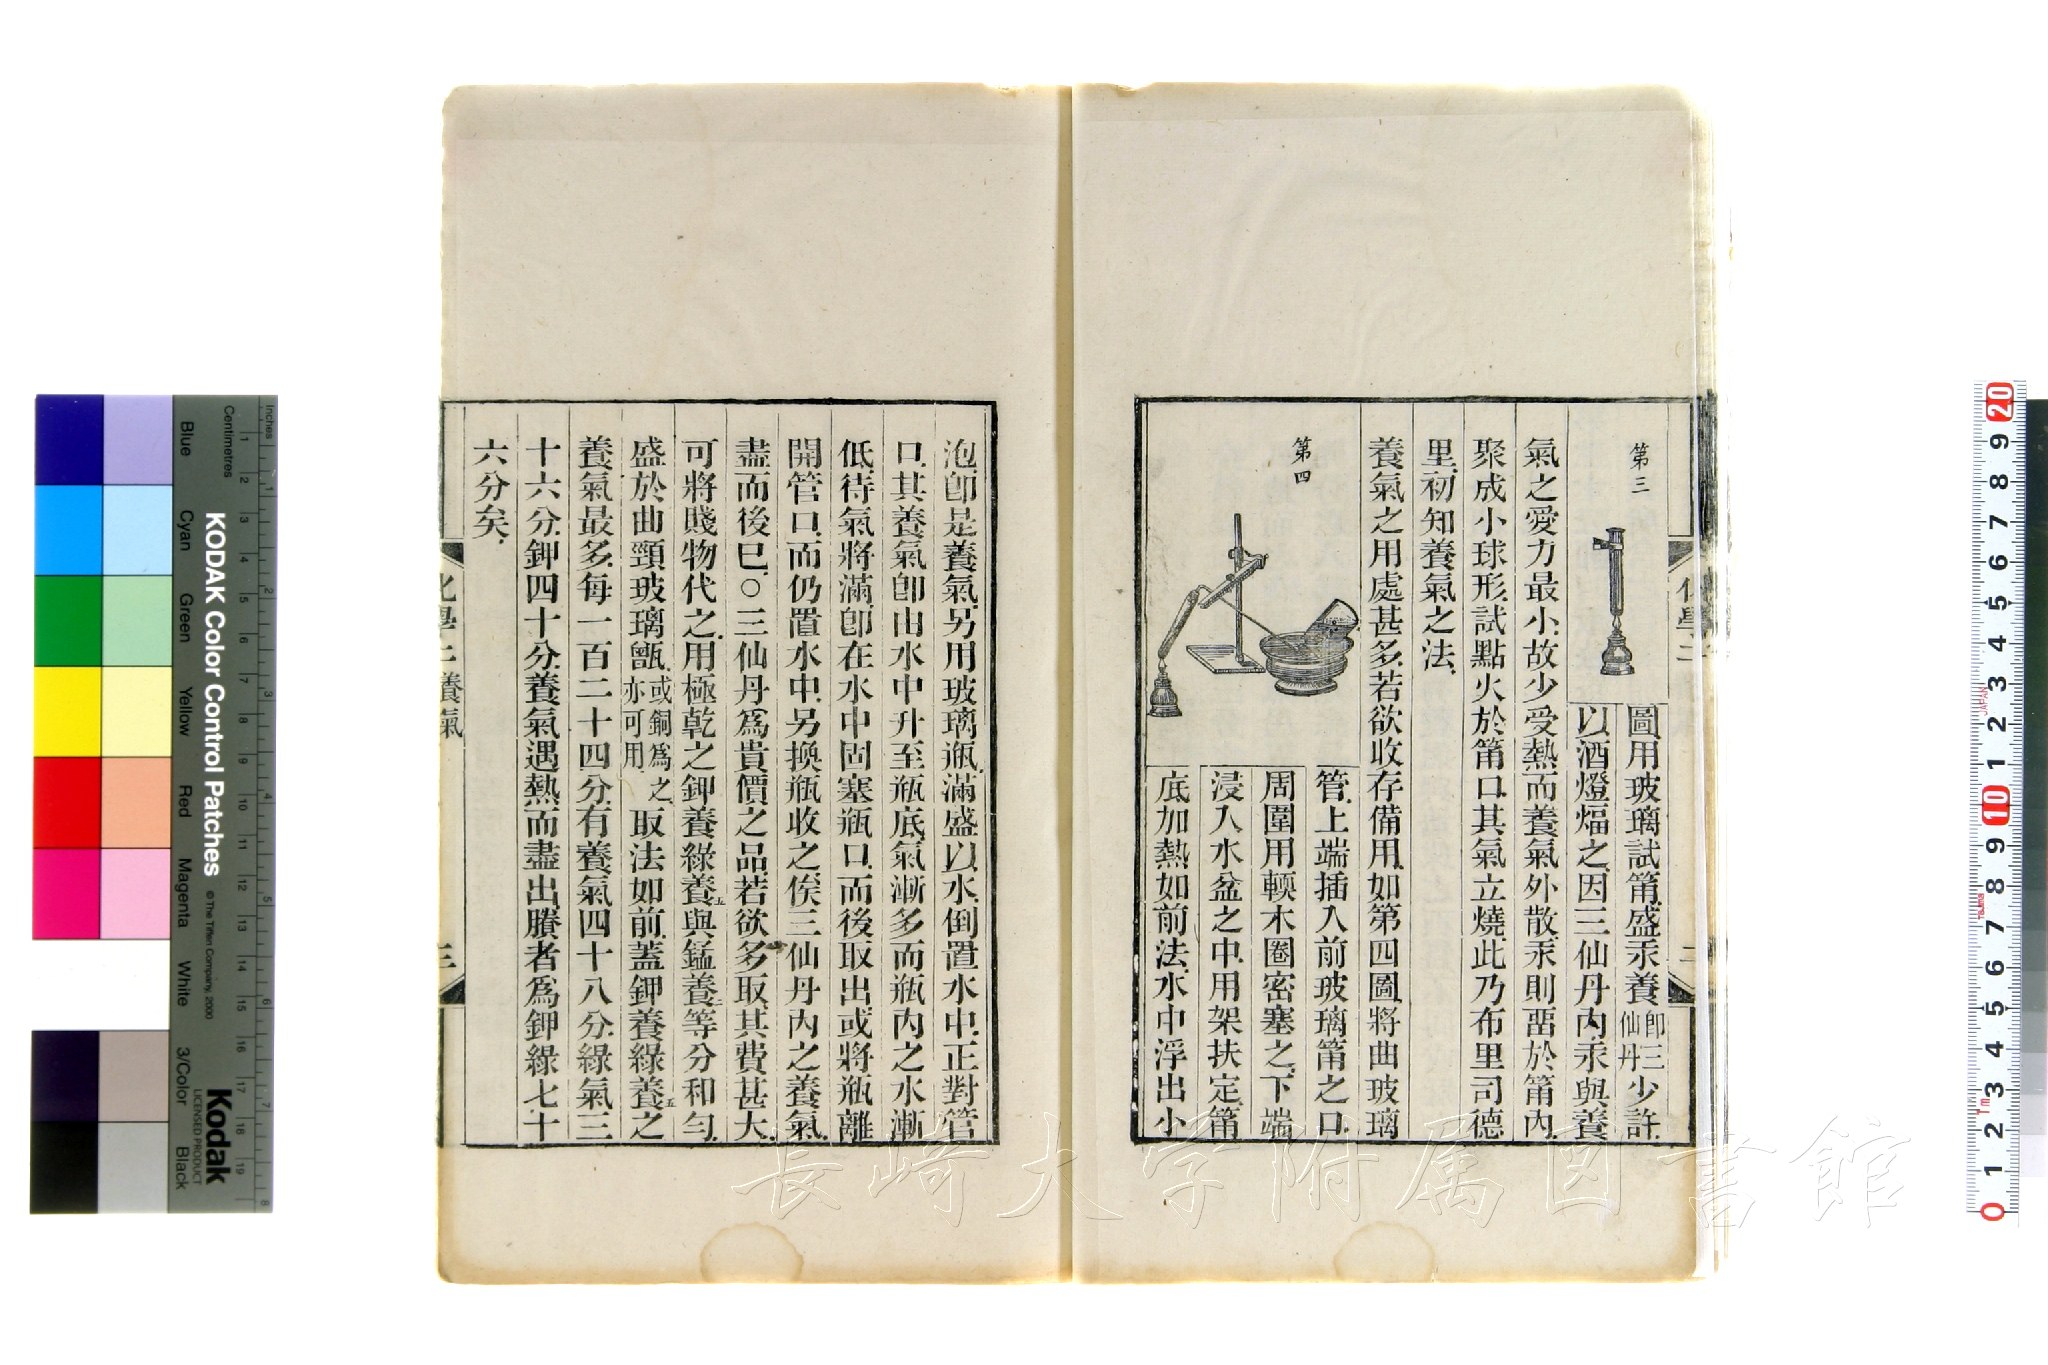 第三
圖用玻璃試筩盛汞養卽三仙丹少許
以酒燈煏之因三仙丹內汞與養
氣之愛力最小故少受熱而養氣外散汞則畱於筩內
聚成小球形試點火於筩口其氣立燒此乃布里司德
里初知養氣之法
養氣之用處甚多若欲收存備用如第四圖將曲玻璃
第四
管上端插入前玻璃筩之口
周圍用輭木圈密塞之下端
浸入水盆之中用架扶定筩
底加熱如前法水中浮出小
化學二
二
泡卽是養氣另用玻璃瓶滿盛以水倒置水中正對管
口其養氣卽由水中升至瓶底氣漸多而瓶內之水漸
低待氣將滿卽在水中固塞瓶口而後取出或將瓶離
開管口而仍置水中另換瓶收之俟三仙丹內之養氣
盡而後已○三仙丹爲貴價之品若欲多取其費甚大
可將賤物代之用極乾之鉀養綠養五與錳養二等分和勻
盛於曲頸玻璃甑或銅爲之亦可用取法如前蓋鉀養綠養五之
養氣最多每一百二十四分有養氣四十八分綠氣三
十六分鉀四十分養氣遇熱而盡出賸者爲鉀綠七十
六分矣
化學二 養氣
三
長崎大学附属図書館
KODAK Color Control Patches
© The Tiffen Company, 2000
Kodak
LICENSED PRODUCT
Inches
Centimetres
Blue
Cyan
Green
Yellow
Red
Magenta
White
3/Color
Black
1 2 3 4 5 6 7 8 9 10 11 12 13 14 15 16 17 18 19
1 2 3 4 5 6 7 8
20 9 8 7 6 5 4 3 2 1 10 9 8 7 6 5 4 3 2 1 0
JAPAN